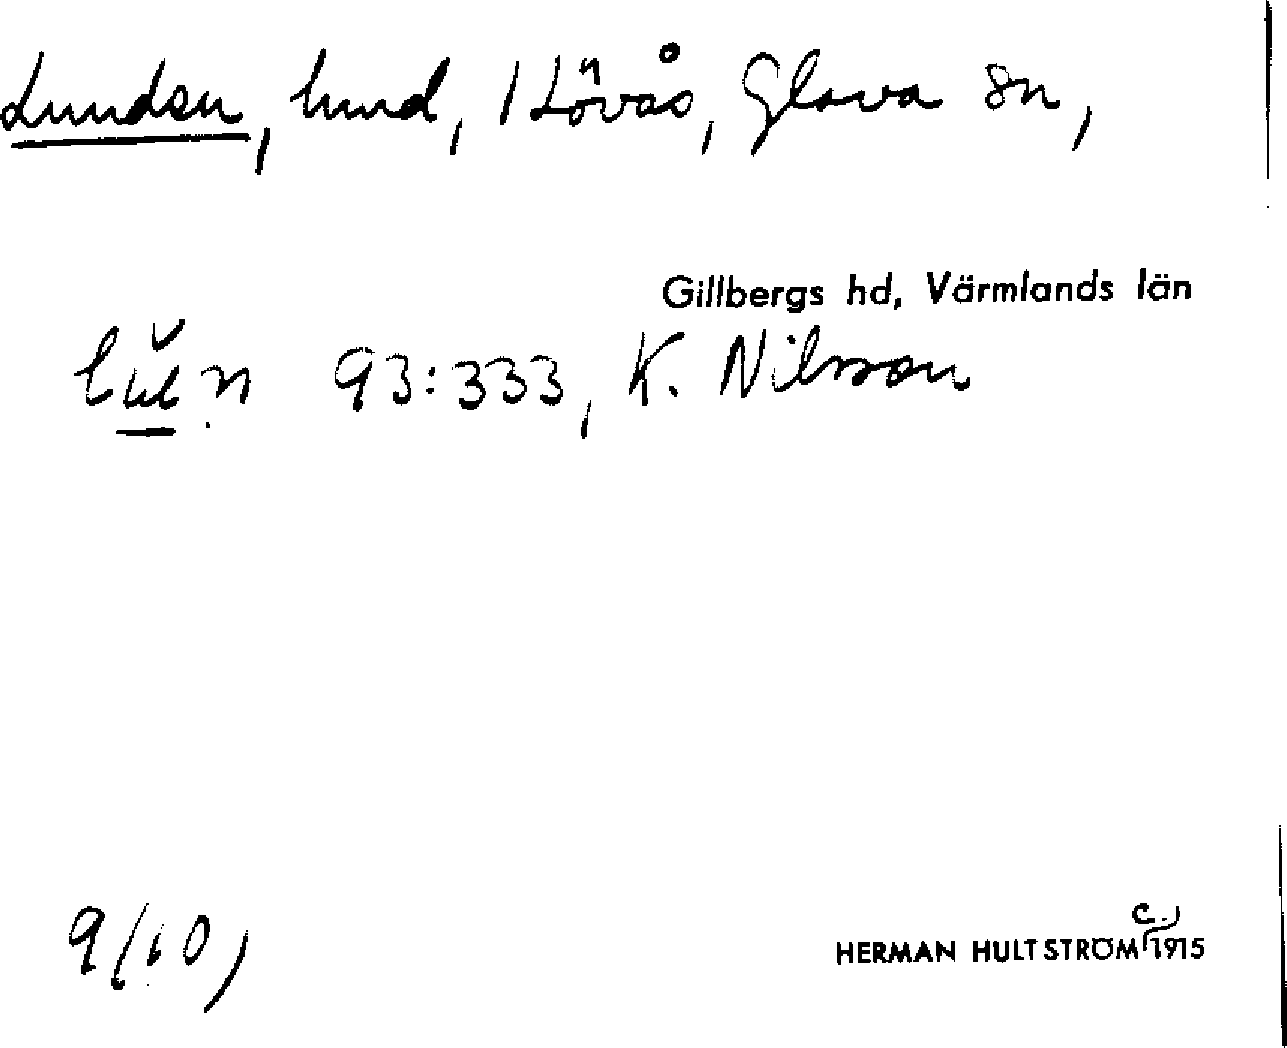 Lunden, lund, 1 Lövås, Glava sn,
Gillbergs hd, Värmlands län
93:333, K. Nilsson
9/10,
HERMAN HULTSTRÖM c.) 1915